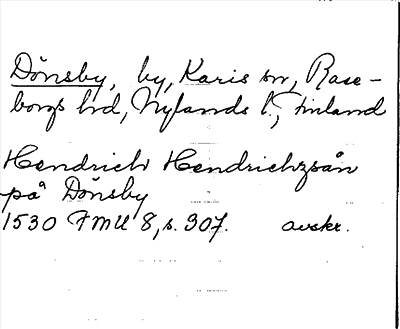 Dönsby, by, Karis sn, Rase-
borgs hd, Nylands l., Finland
Hendrich Hendrichzsån
på Dönsby
1530 FMU 8, s. 307. avskr.